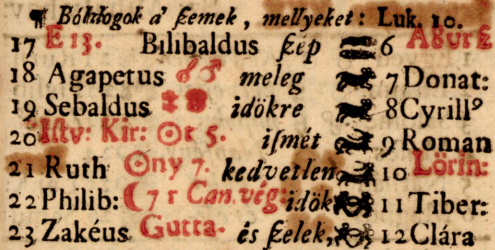 ¶ Bóldogok a' ſzemek, mellyeket: Luk. 10.
17 E 13. Bilibaldus ſzép 6
18 Agapetus ☌♂ meleg 7 Donat:
19 Sebaldus idökre 8 Cyrill⁹
20 Iſtv: Kir: ☉ 5. iſmét 9 Roman
21 Ruth ☉ny 7. kedvetlen 10 Lörin:
22 Philib: ☾ 7 r Can. vég: idök 11 Tiber:
23 Zakéus Gutta. és ſzelek, 12 Clára